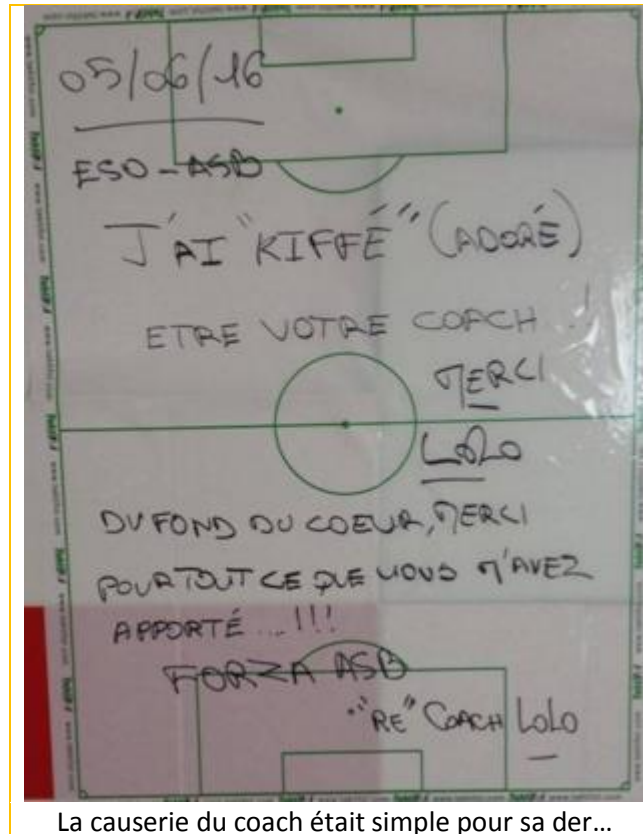 05/06/16
ESO-ASB
J'AI "KIFFÉ" (ADORÉ)
ETRE VOTRE COACH !
MERCI
LOLO
DU FOND DU COEUR, MERCI
POUR TOUT CE QUE VOUS M'AVEZ
APPORTÉ ...!!!
FORZA ASB
"RE" COACH LOLO
La causerie du coach était simple pour sa der...